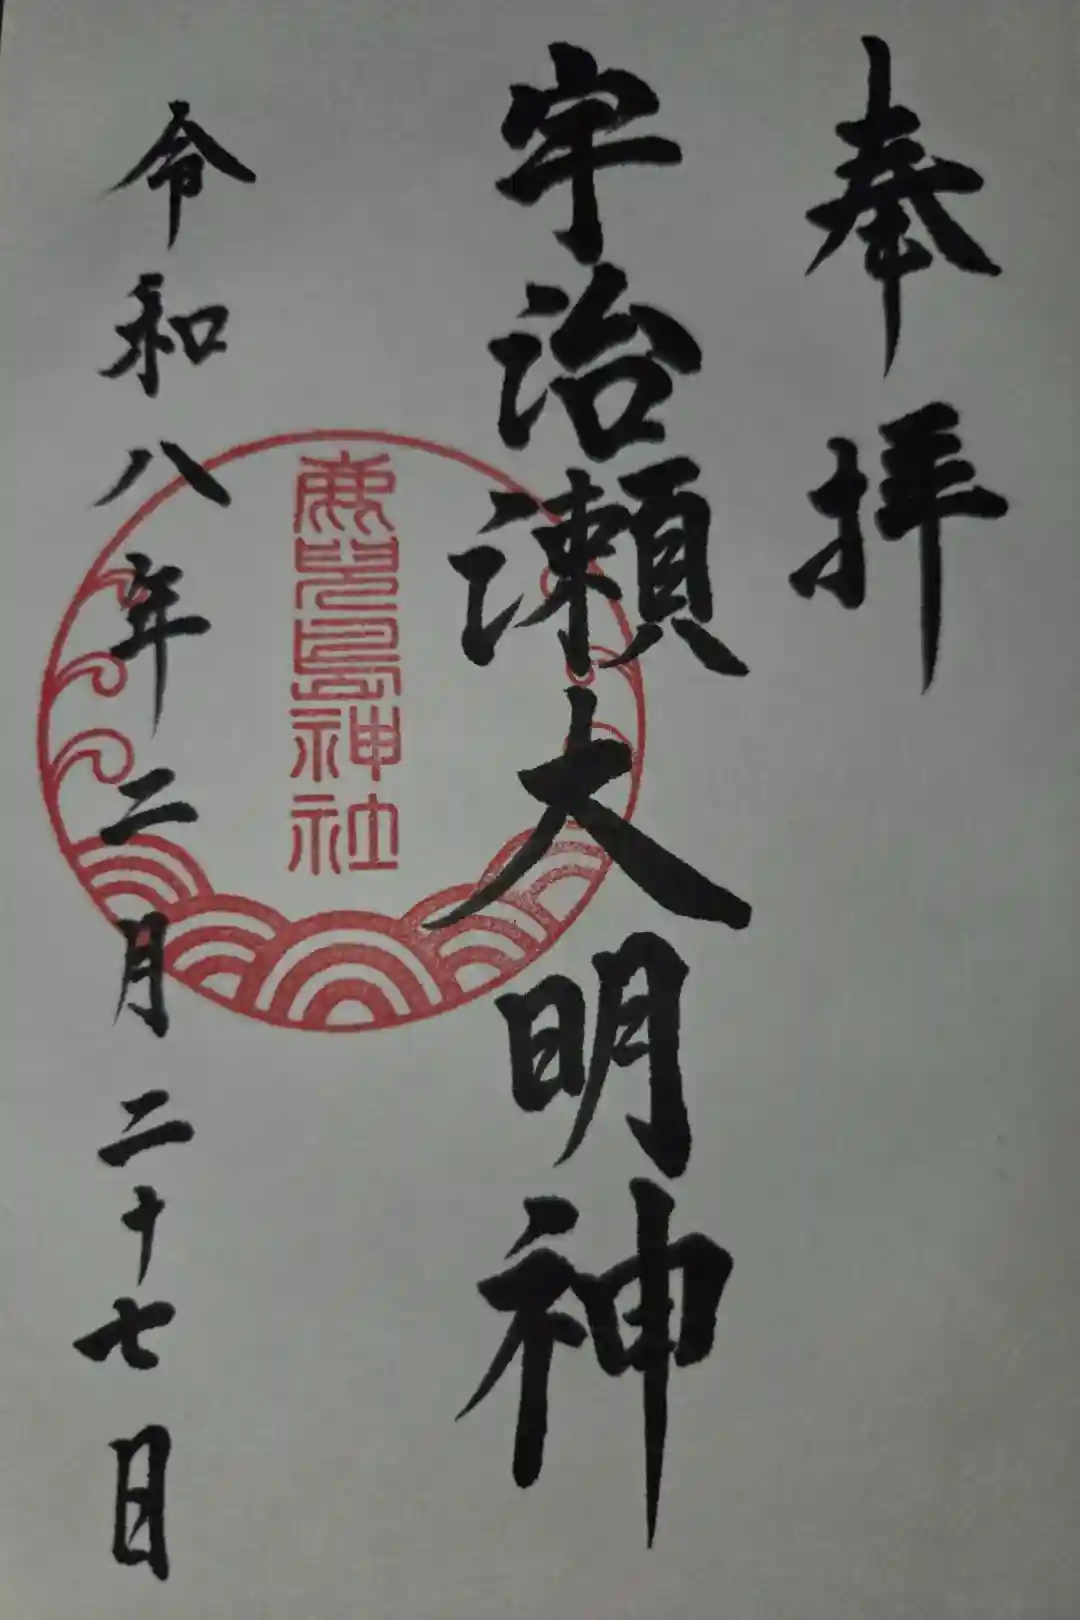 奉拝
宇治瀬大明神
鹿兒島神社
令和八年二月二十七日